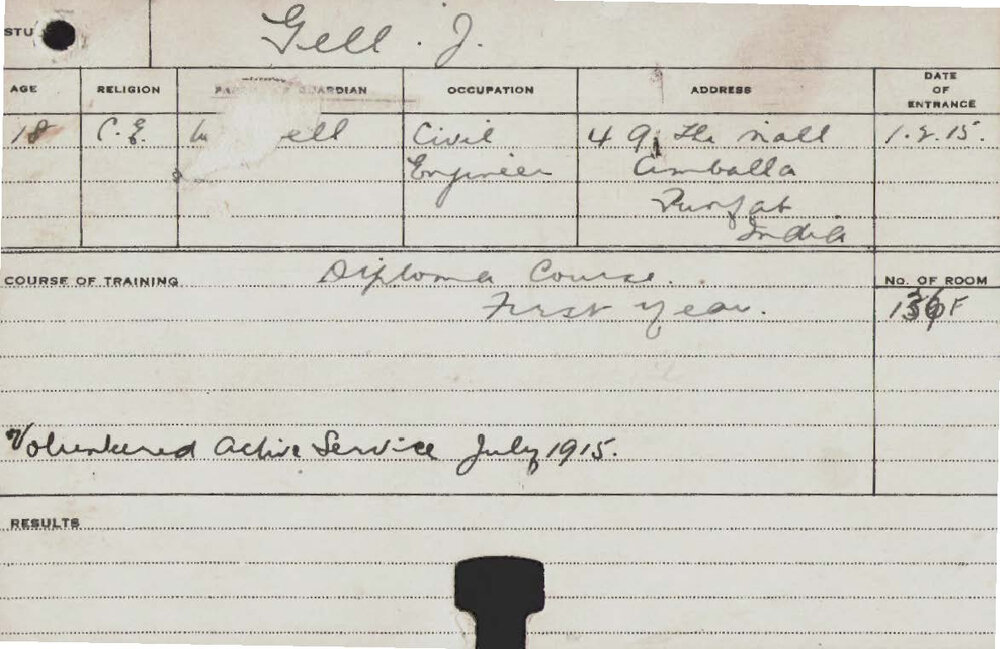 STU
Gell. J.
AGE RELIGION GUARDIAN OCCUPATION ADDRESS DATE OF ENTRANCE
18 C.E. ell Civil 49, The Mall 1.2.15.
Engineer Amballa
Punjab
India
COURSE OF TRAINING Diploma Course. No. OF ROOM
First Year.
Volunteered Active Service July 1915.
RESULTS